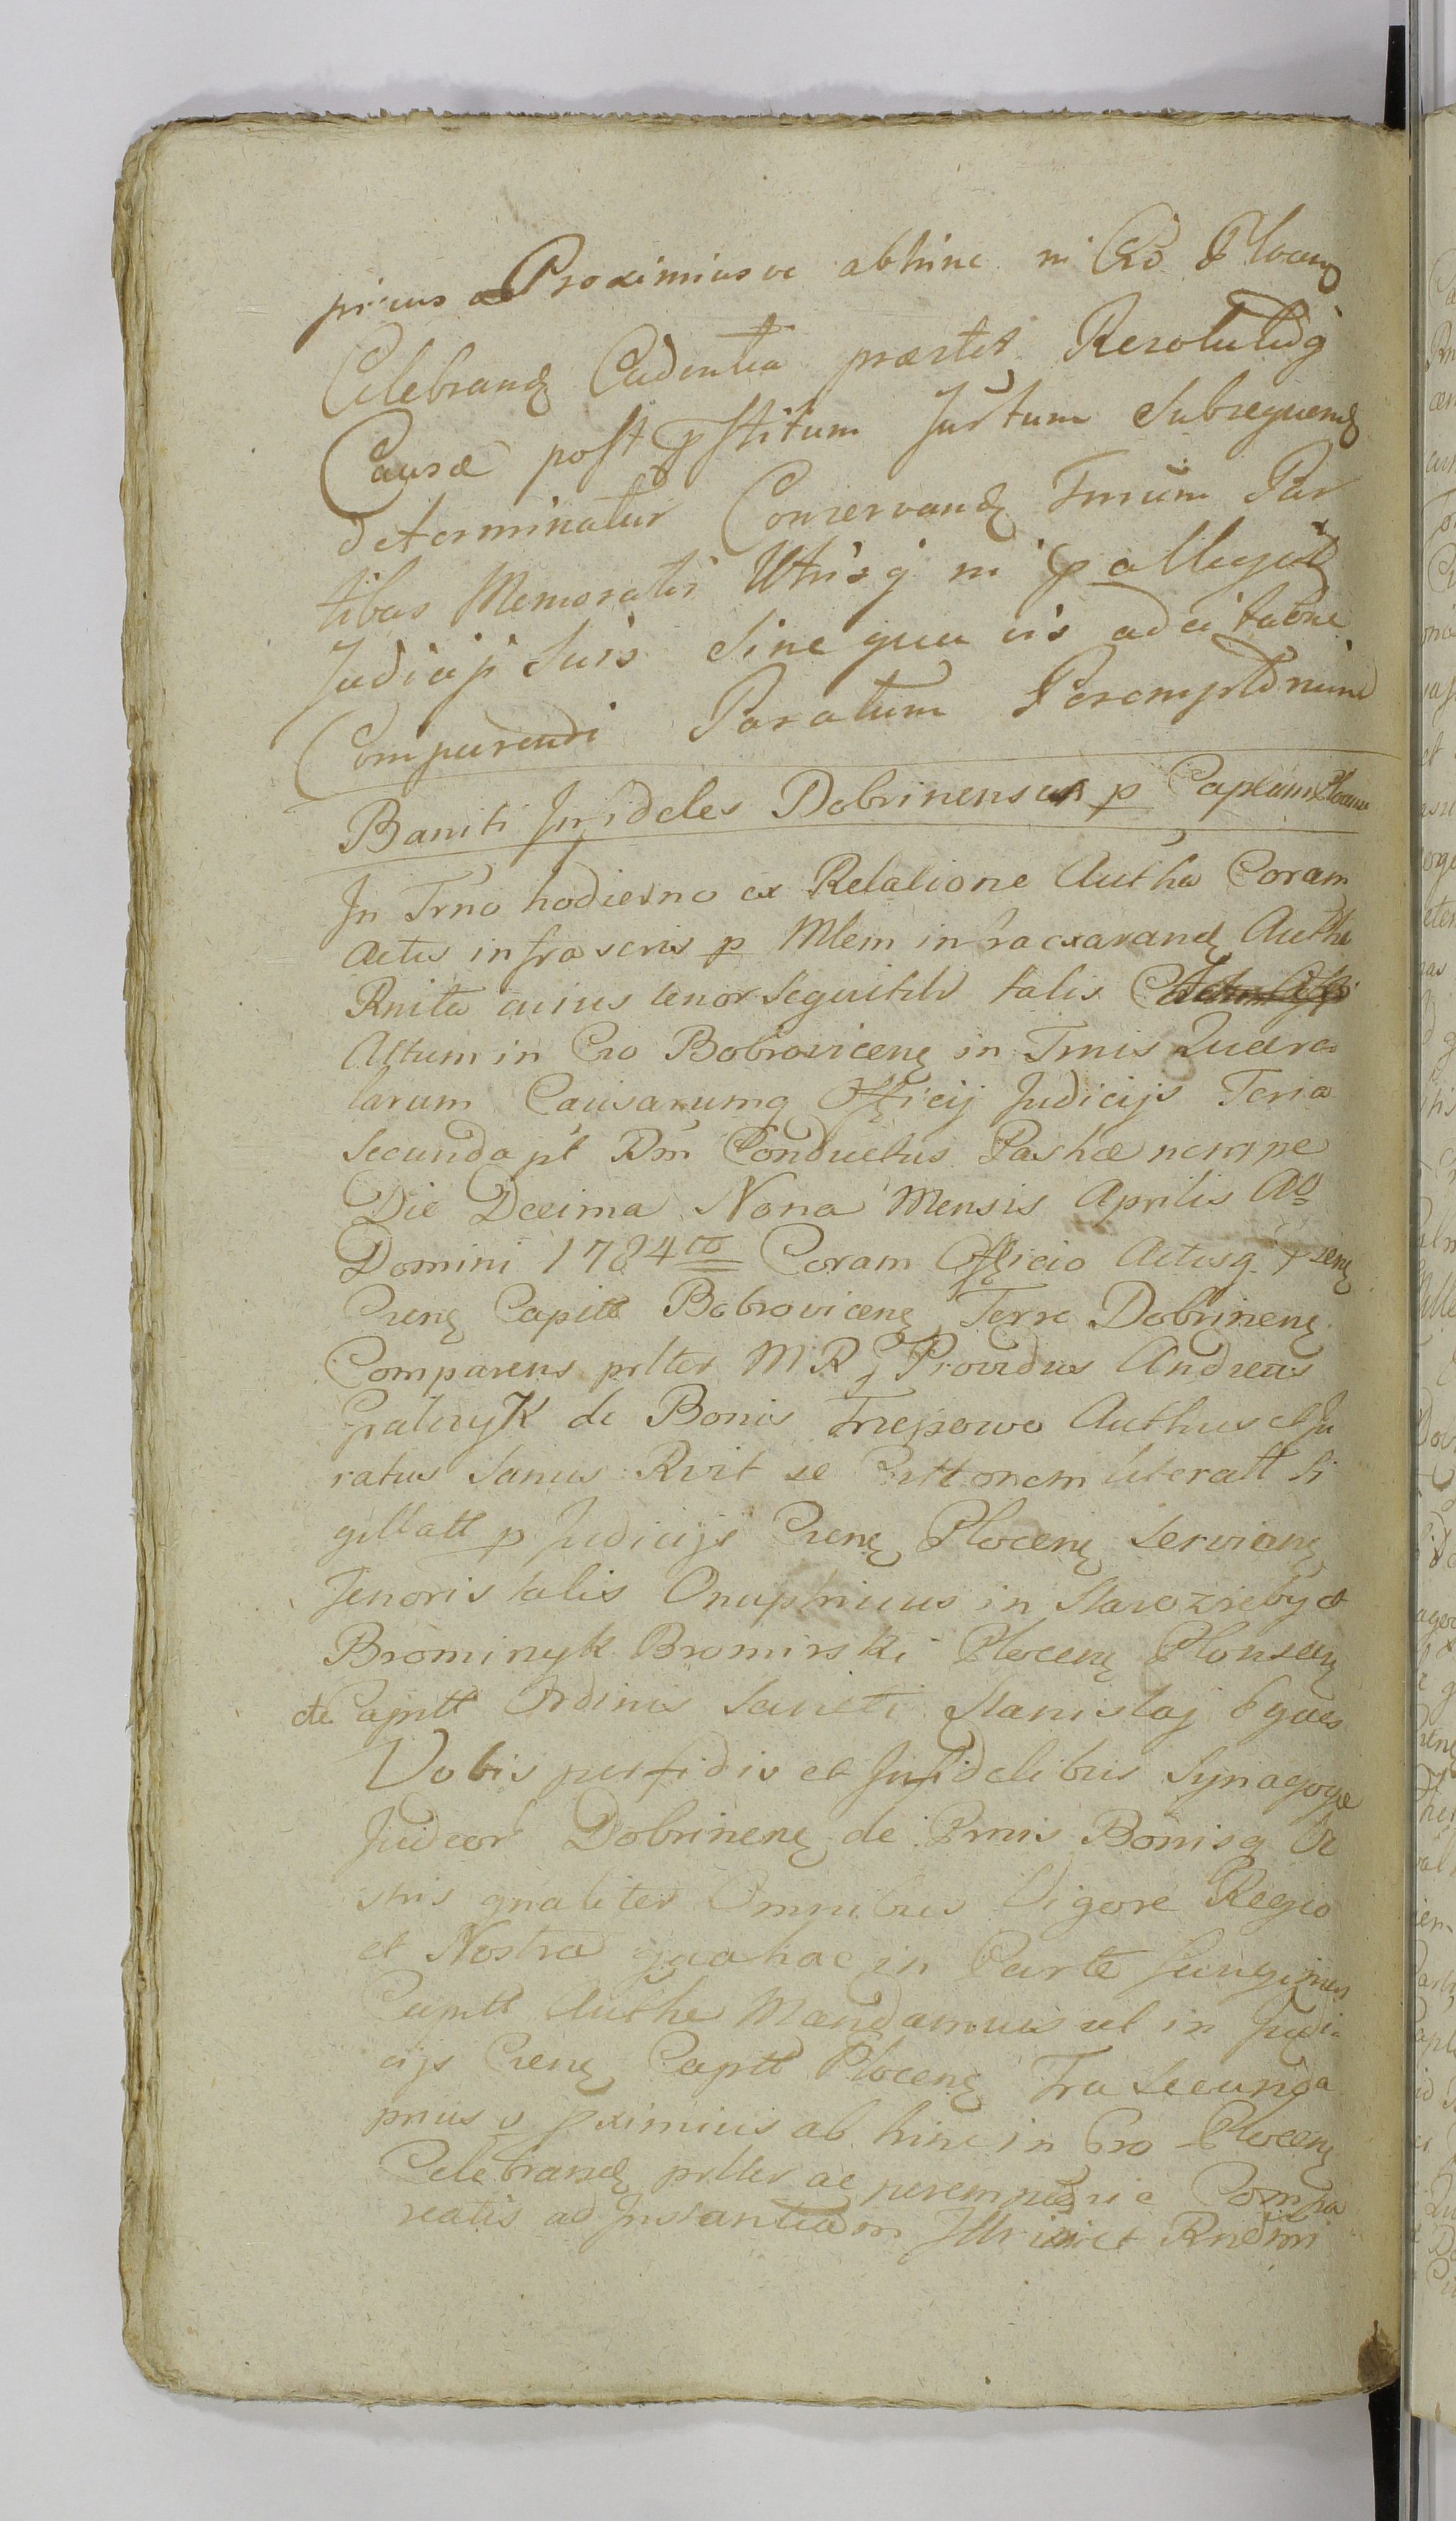 prius ac Proximius ve abhinc in Cro Plocen
Celebrand Cadentia præstet Resolutioq
Causæ post pstitum Jurtum Subsequend
determinatur Conservand Trnum Par
tibus Memoratis Utrisq in pallegat
Judicijs Suis Sine qua vis adcitatne
Comparendi Paratum Peremptorium
Baniti Infideles Dobrinenses p Captum Plocen
In Trno hodierno ex Relatione Autha Coram
Actis infrascris p Mlem infraexarand Authe
Rnita cuius tenor Sequitur talis
Actum in Cro Bobrovicen in Trnis Quære
larum Causarumq Officij Judicijs Feria
Secunda pt Dm Conductus Paschæ nempe
Die Decima Nona Mensis Aprilis Ao
Domini 1784to Coram Officio Actisq psen
Cren Capitt Bobrovicen Terræ Dobrinen
Comparens prlter MRg Providus Andreas
Gralczyk de Bonis Trzepowo Authus et Ju
ratus Sanus Rvit se Cittonem literatt Si
gillatt p Judicijs Cren Plocen Servien
Tenoris talis Onuphrius in Starozreby et
Brominyk Bromirski Plocen Plonscen
etc Captt Ordinis Sancti Stanislaj Eques
Vobis perfidis et Infidelibus Synagogæ
Judæor Dobrinen de Prnis Bonisq Ve
stris gnaliter Omnibus Vigore Regia
et Nostra qua hac in Parte fungimur
Captt Authe Mandamus ut in Judi
cijs Cren Captt Plocen Fra Secunda
prius v pximius ab hinc in Cro Plocen
Celebrand prlter ac peremptorie Compa
reatis ad Instantiam Illrimi et Rndmi